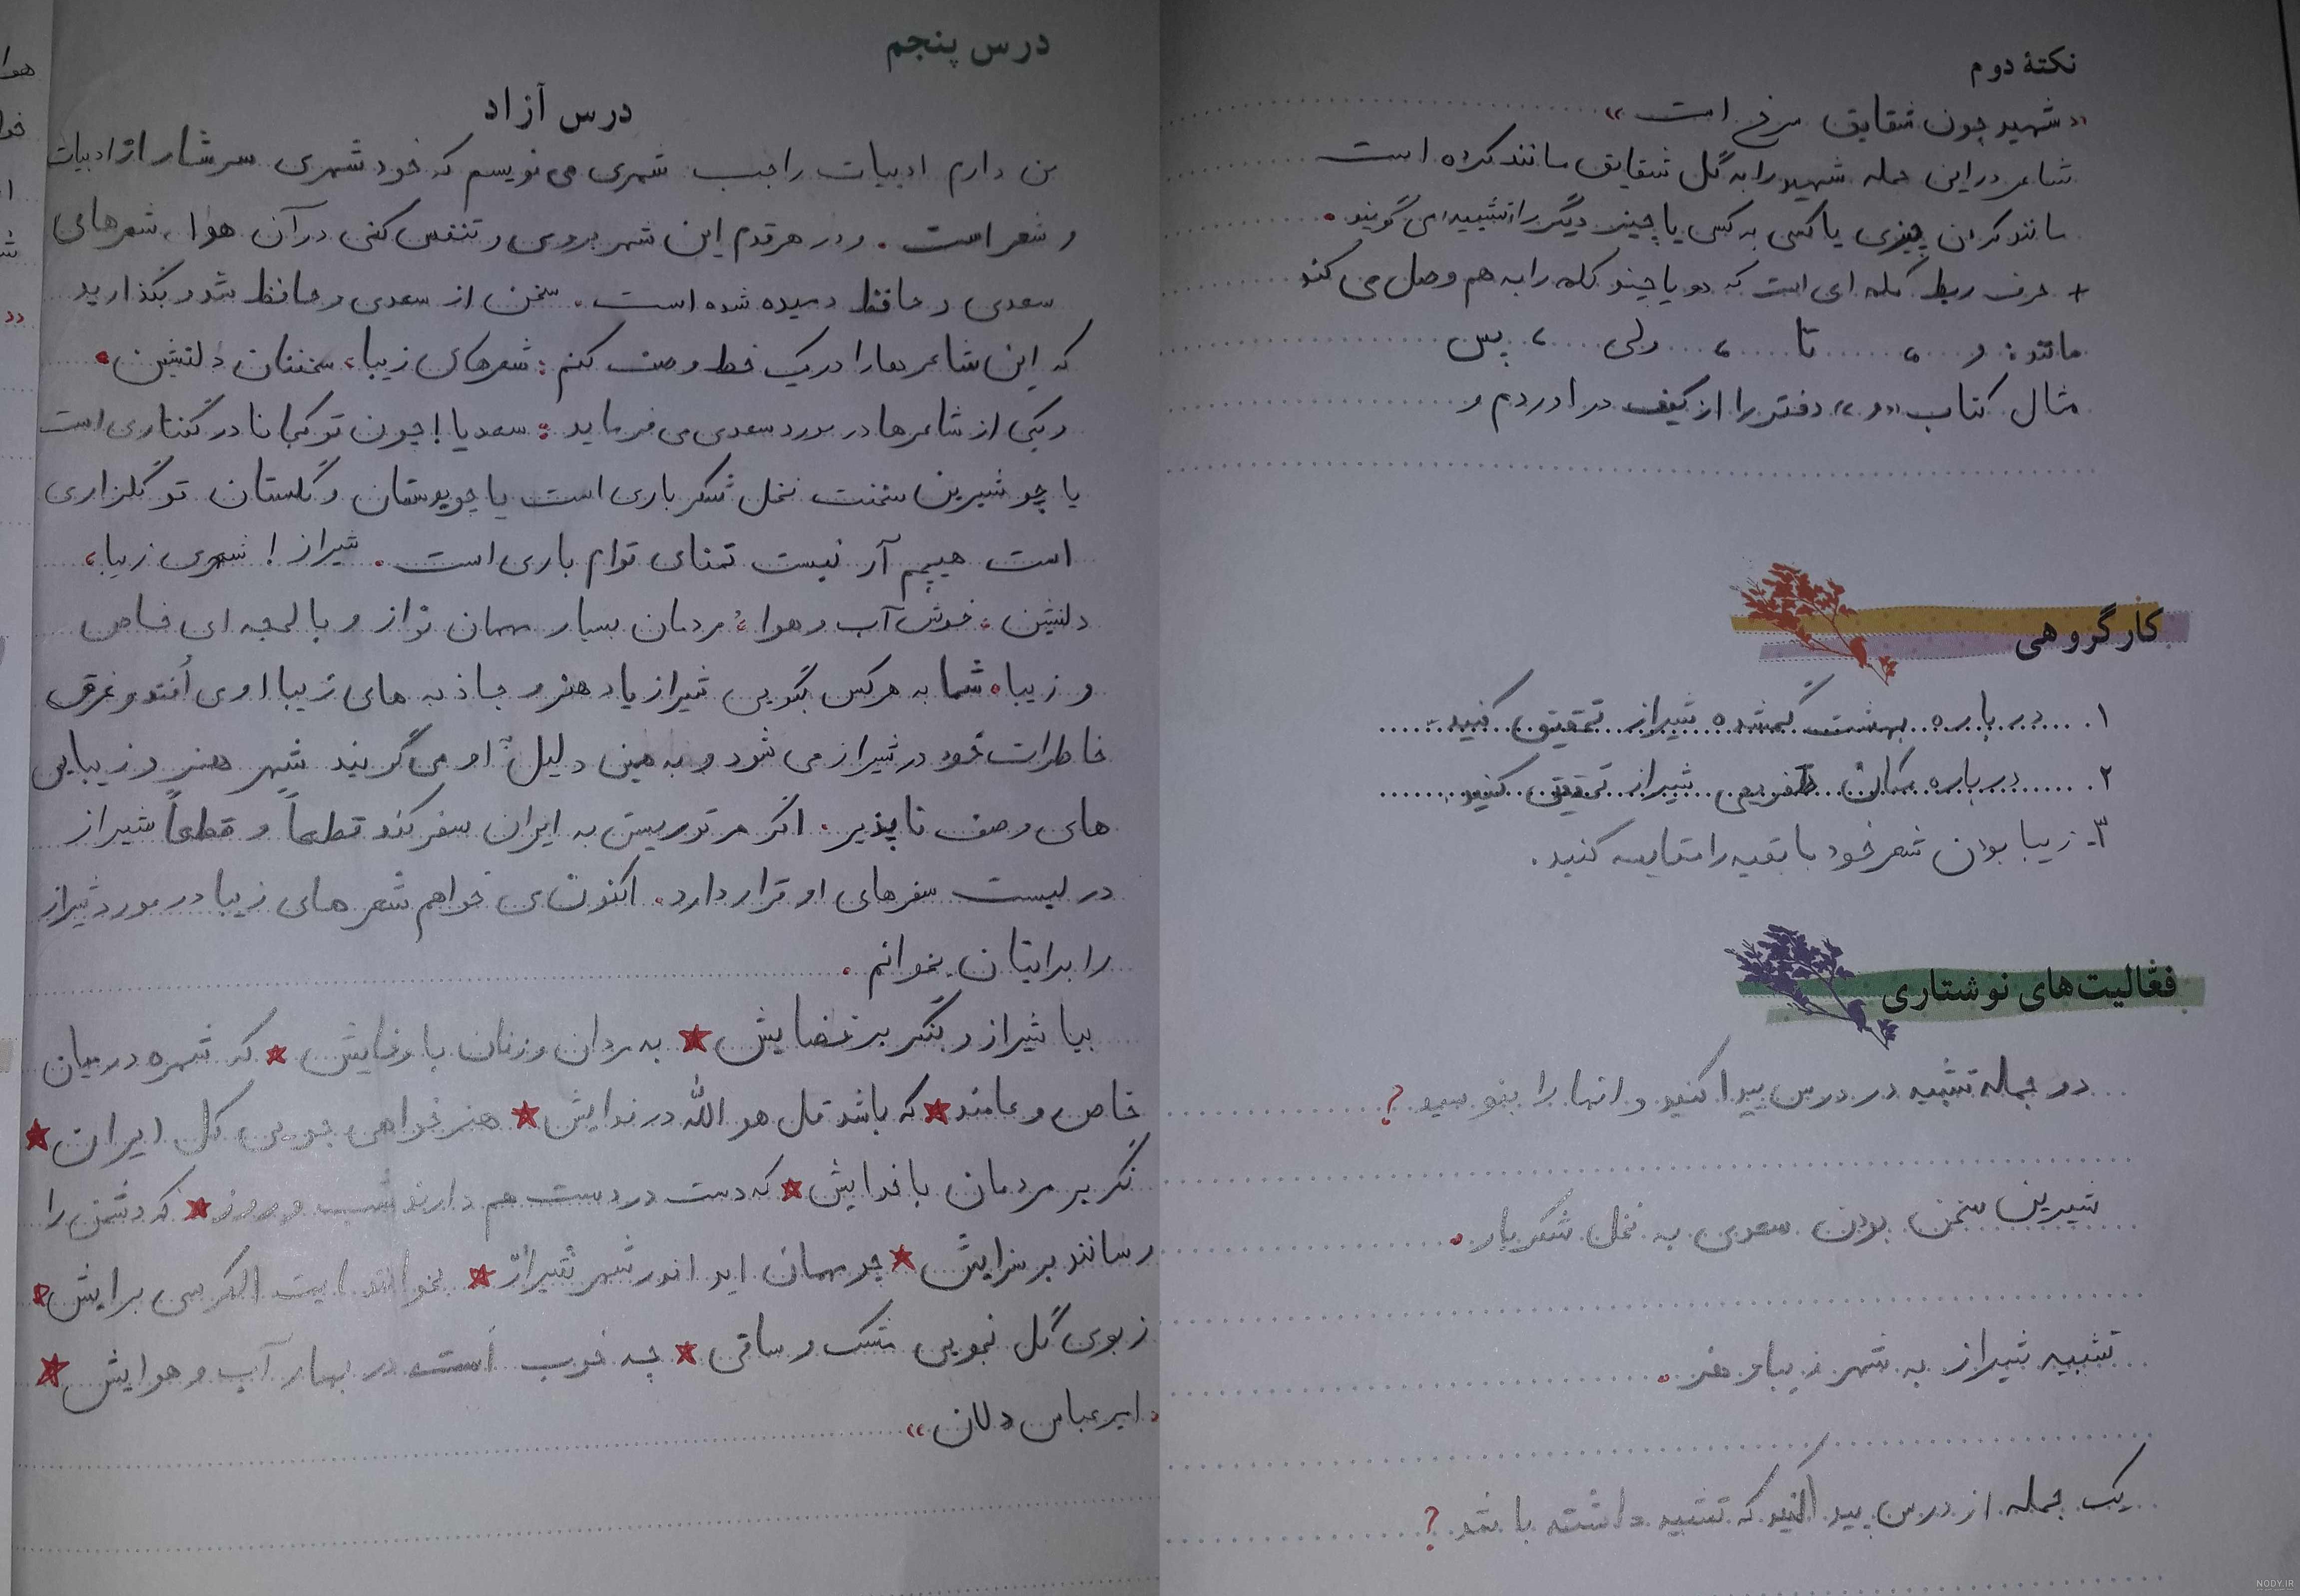 نکتهٔ دوم
«شهید چون شقایق سرخ است»
شاعر در این جمله شهید را به گل شقایق مانند کرده است
مانند کردن چیزی یا کسی به کسی یا چیز دیگر را تشبیه می گویند.
+ حرف ربط کلمه ای است که دو یا چند کلمه را به هم وصل می کند
مانند: و ، تا ، ولی ، پس
مثال کتاب «و» دفتر را از کیف در اوردم و
کار گروهی
۱. در باره بهشت گمشده شیراز تحقیق کنید.
۲. درباره مکان تفریحی شیراز تحقیق کنید.
۳. زیبا بودن شهر خود با بقیه را مقایسه کنید.
فعّالیت‌های نوشتاری
دو جمله تشبیه در درس پیدا کنید و انها را بنویسید ?
شیرین سخن بودن سعدی به نخل شکر بار.
تشبیه شیراز به شهر زیبا و هنر.
یک جمله از درس پیدا کنید که تشبیه داشته باشد ?
درس پنجم
درس آزاد
من دارم ادبیات راجب شهری می نویسم که خود شهری سرشار از ادبیات
و شعر است. و در هر قدم این شهر بروی و تنفس کنی در آن هوا، شعرهای
سعدی و حافظ دمیده شده است. سخن از سعدی و حافظ شد و بگذارید
که این شاعر ها را در یک خط وصف کنم: شعرهای زیبا، سخنان دلنشین.
و یکی از شاعرها در مورد سعدی می فرماید: سعدیا! چون تو کجا نادر گفتاری است
یا چو شیرین سخنت نخل شکر باری است یا چو بوستان و گلستان تو گلزاری
است هیچم آر نیست تمنای توام باری است. شیراز! شهری زیبا،
دلنشین، خوش آب و هوا، مردمان بسیار مهمان نواز و با لهجه ای خاص
و زیبا. شما به هرکس بگویی شیراز یاد هنر و جاذبه های زیبا اوی اُفتد و غرق
خاطرات خود در شیراز می شود و به همین دلیل او می گویند شهر هنر و زیبایی
های وصف ناپذیر. اگر هر توریستی به ایران سفر کند قطعاً و قطعاً شیراز
در لیست سفرهای او قرار دارد. اکنون می خواهم شعر های زیبا در مورد شیراز
را برایتان بخوانم.
بیا شیراز و بنگر بر فضایش * به مردان و زنان با وفایش * که شهره در میان
خاص و عامند * که باشد قل هو الله در ندایش * هنر خواهی چو بی کل ایران *
نگر بر مردمان با خدایش * که دست در دست هم دارند شب و روز * که دشمن را
رسانند بر سزایش * چو مهمان اید اندر شهر شیراز * بخوانند ایت الکرسی برایش *
ز بوی گل نجویی مشک و ساقی * چه خوب است در بهار آب و هوایش *
«امیر عباس دلان»